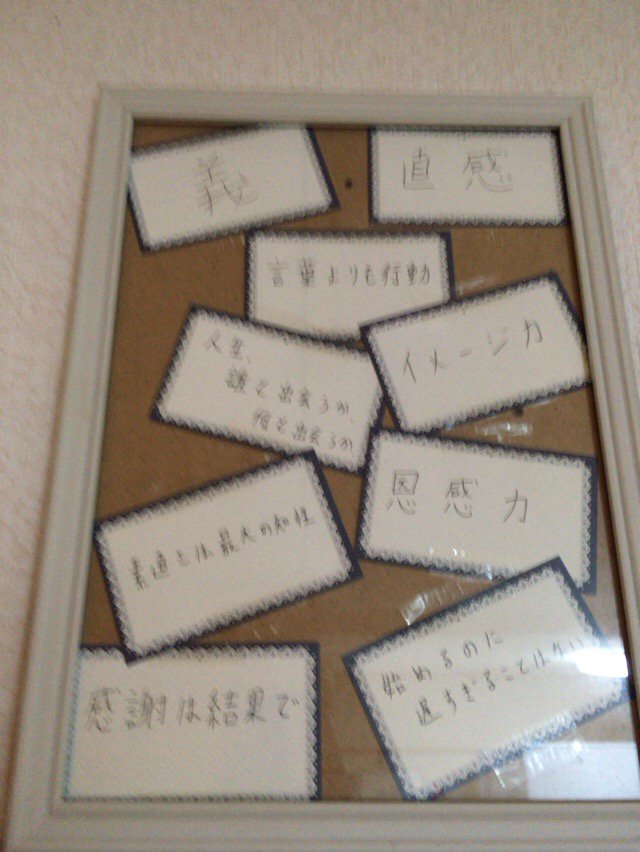 義
直感
言葉よりも行動
人生、
誰と出会うか
何と出会うか
イメージ力
恩感力
素直とは最大の知性
感謝は結果で
始めるのに
遅すぎることはない